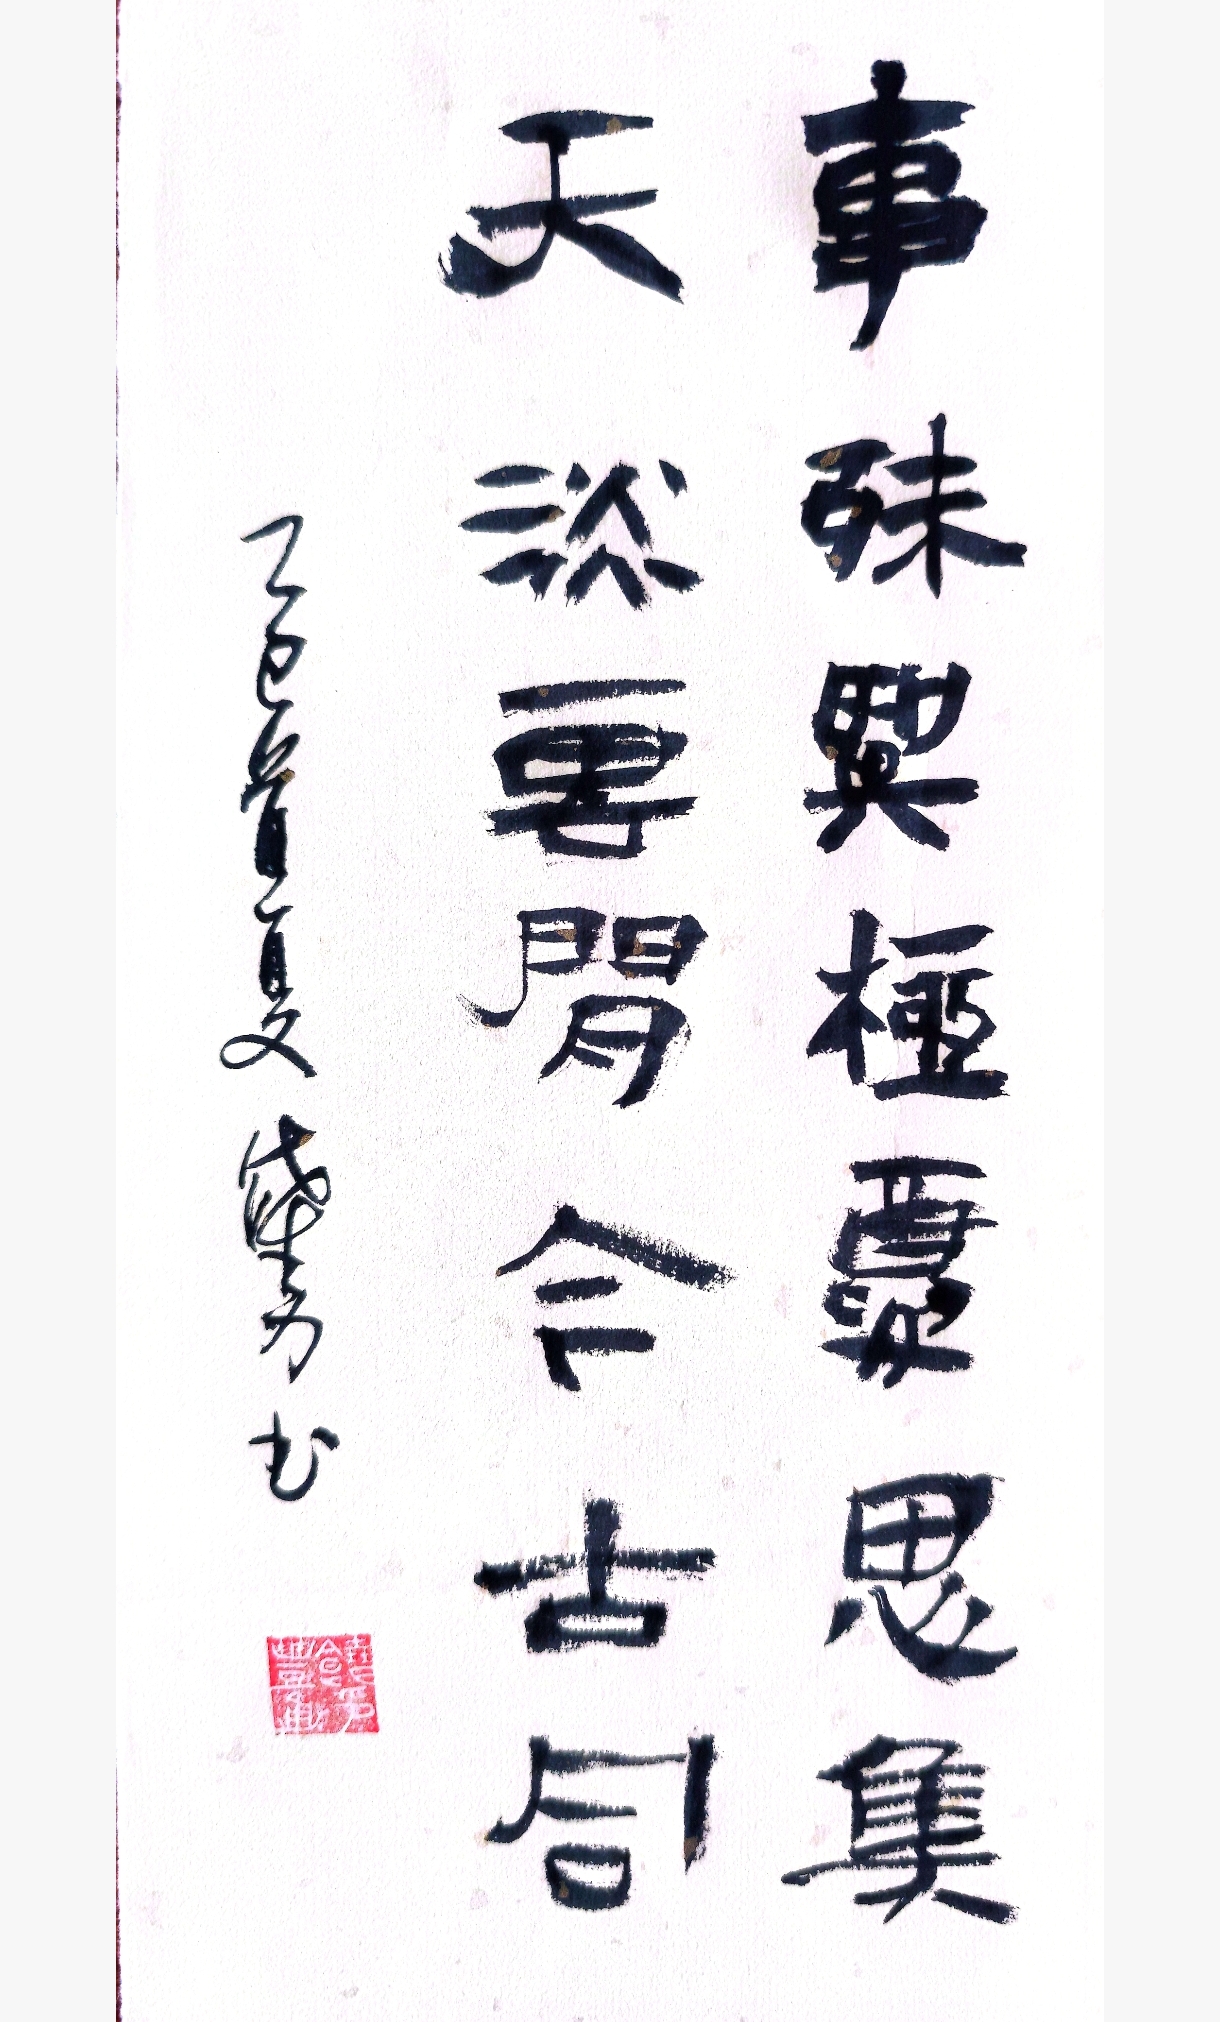 事殊興極憂思集
天淡雲閒今古同
乙巳首夏 书